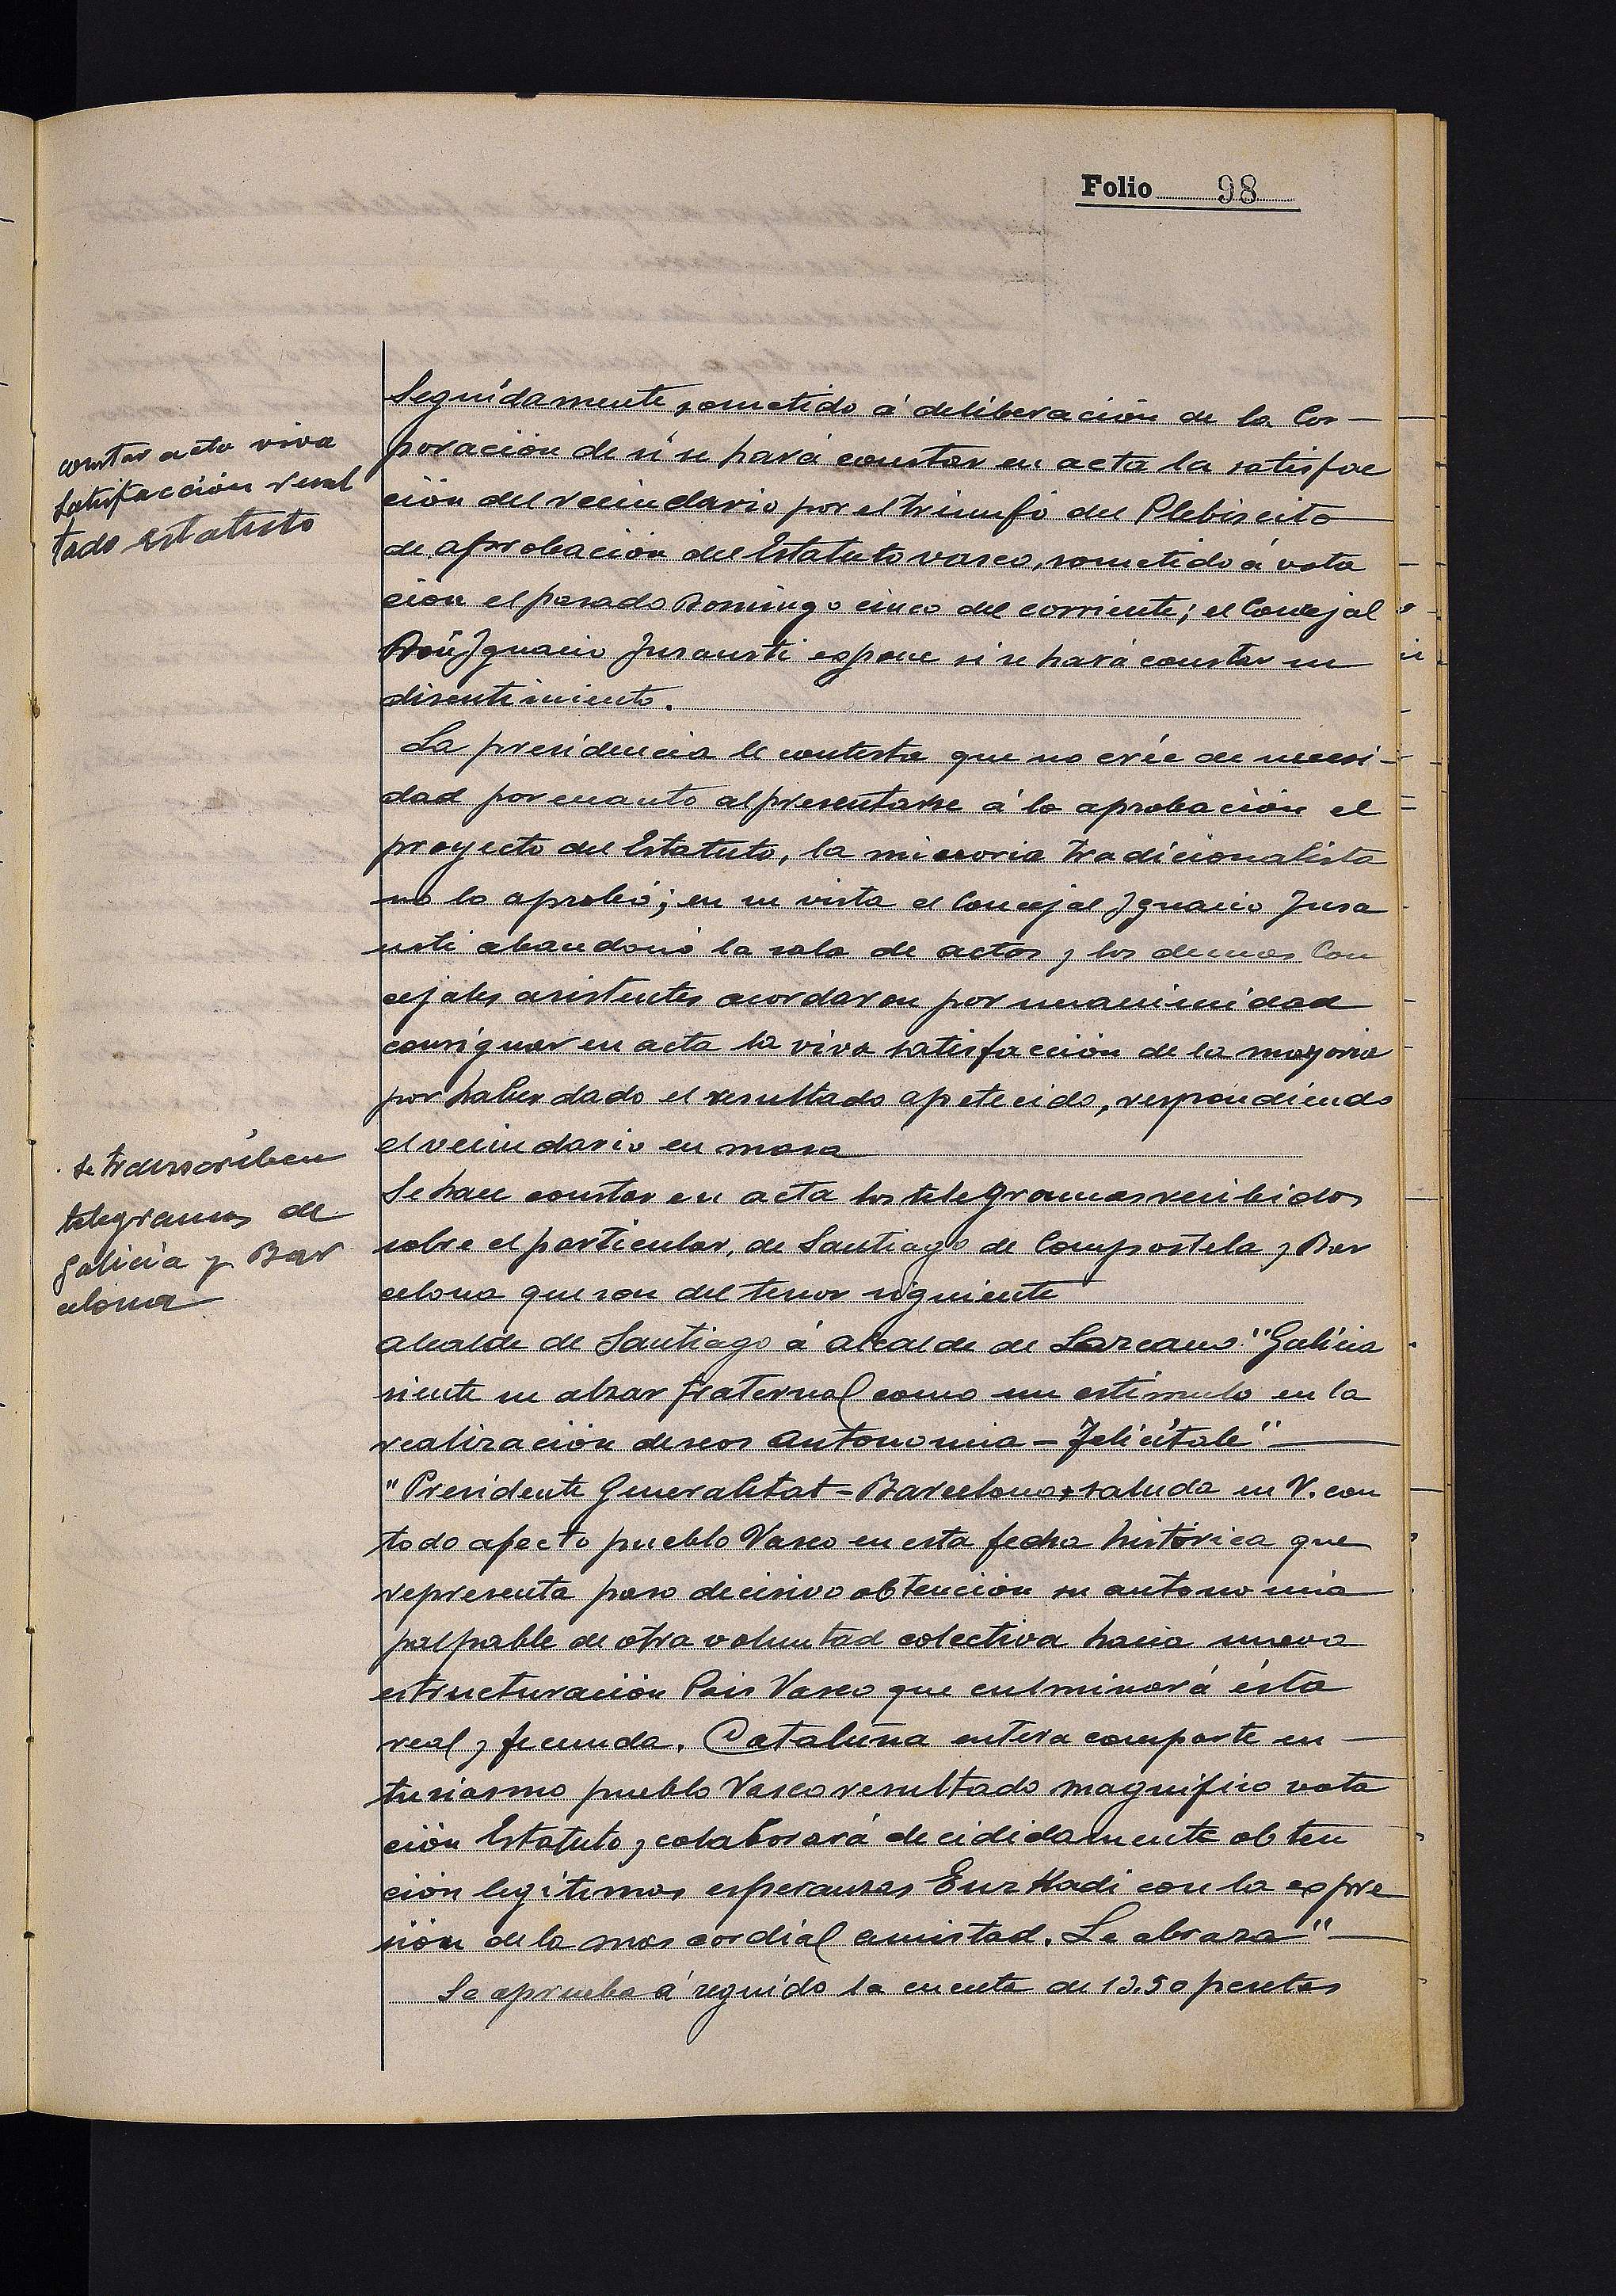 Folio 98
constar acta viva
satisfacción resul
tado estatuto
Seguídamente sometido á deliberación de la Cor-
poración de si se hará constar en acta la satisfac
ción del vecindario por el triunfo del Plebiscito
de aprobación del Estatuto vasco, sometido á vota
ción el pasado Domingo cinco del corriente; el Concejal
Don Ignacio Insausti expone si se hará constar su
disentimiento.
La presidencia le contesta que no crée de necesi-
dad por cuanto al presentarse á la aprobación el
proyecto del Estatuto, la minoria tradicionalista
no lo aprobó; en su vista el Concejal Ignacio Insa
usti abandonó la sala de actos y los demas Con
cejales asistentes acordaron por unanimidad
consignar en acta la viva satisfacción de la mayoria
por haber dado el resultado apetecido, respondiendo
el vecindario en masa
se transcriben
telegramas de
Galicia y Bar
celona
Se hace constar en acta los telegramas recibidos
sobre el particular, de Santiago de Compostela y Bar
celona que son del tenor siguiente
Alcalde de Santiago á alcalde de Lazcano "Galicia
siente su abrazo fraternal como un estímulo en la
realización deseos autonomia - Felicítale"
"Presidente Generalitat - Barcelona saluda en V. con
todo afecto pueblo Vasco en esta fecha histórica que
representa paso decisivo obtención su autonomia
palpable de otra voluntad colectiva hacia nueva
estructuración Pais Vasco que culminará ésta
real y fecunda. Cataluña entera comparte en-
tusiasmo pueblo Vasco resultado magnifico vota
ción Estatuto y colaborará decididamente obten
ción legítimas esperanzas Euzkadi con la expre
sión de la mas cordial amistad. Le abraza"
Se aprueba á seguido la cuenta de 13.50 pesetas